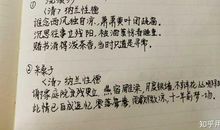 〈清〉纳兰性德
谁念西风独自凉，萧萧黄叶闭疏窗，
沉思往事立残阳。被酒莫惊春睡重，
赌书消得泼茶香，当时只道是寻常。
② 采桑子
〈清〉纳兰性德
谢家庭院残更立，燕宿雕梁，月度银墙，不辨花丛那
此情已自成追忆，零落鸳鸯，雨歇微凉，十一年前梦一场。
知乎